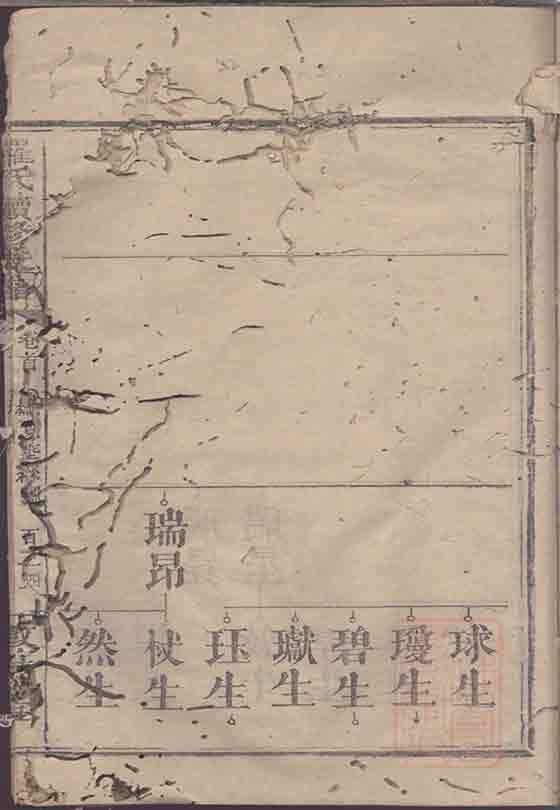 瑞昂
球生
璦生
碧生
瓛生
珏生
杖生
然生
羅氏續修
卷首
百二四